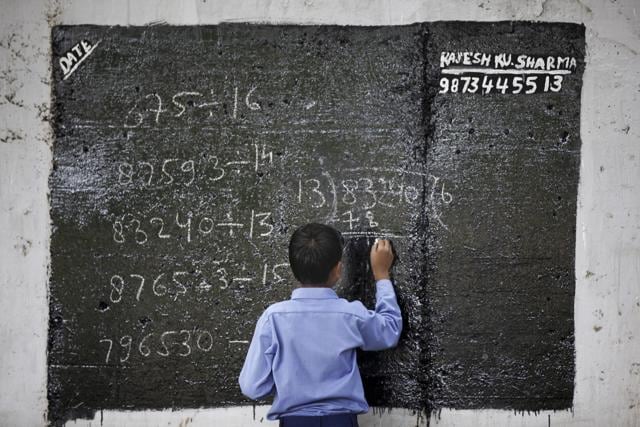 DATE
RAJESH KU. SHARMA
9873445513
675÷16
87593÷14
13)83240(6
78
83240÷13
87653÷15
796530 –